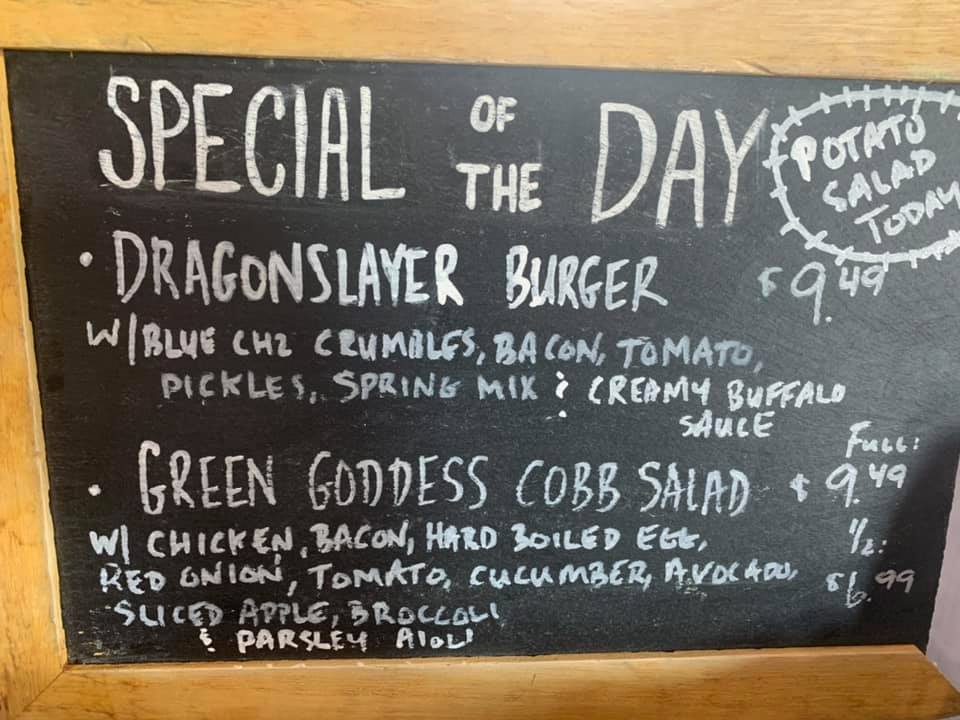 SPECIAL OF THE DAY
POTATO
SALAD
TODAY
• DRAGONSLAYER BURGER $9.49
W/BLUE CHZ CRUMBLES, BACON, TOMATO,
PICKLES, SPRING MIX & CREAMY BUFFALO
SAUCE
• GREEN GODDESS COBB SALAD
FULL:
$9.49
W/ CHICKEN, BACON, HARD BOILED EGG,
1/2:
RED ONION, TOMATO, CUCUMBER, AVOCADO,
$6.99
SLICED APPLE, BROCCOLI
& PARSLEY AIOLI